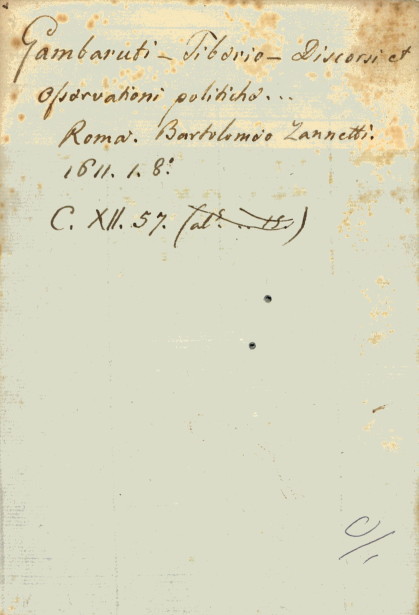 Gambaruti - Tiberio - Discorsi et
osservationi politiche...
Roma. Bartolomeo Zannetti.
1611. 1. 8.º
C. XII. 57.
C/.